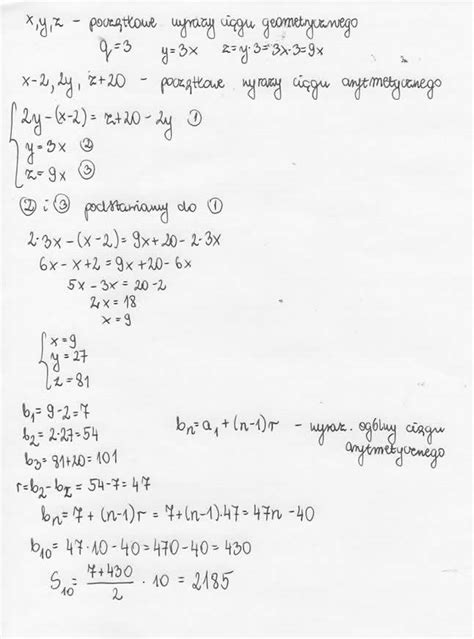 x,y,z - początkowe wyrazy ciągu geometrycznego
q=3 y=3x z=y·3=3x·3=9x
x-2, 2y, z+20 - początkowe wyrazy ciągu arytmetycznego
2y-(x-2)=z+20-2y ①
y=3x ②
z=9x ③
② i ③ podstawiamy do ①
2·3x-(x-2)=9x+20-2·3x
6x-x+2=9x+20-6x
5x-3x=20-2
2x=18
x=9
x=9
y=27
z=81
b₁=9-2=7
b₂=2·27=54
b₃=81+20=101
bₙ=a₁+(n-1)r - wyraz. ogólny ciągu
arytmetycznego
r=b₂-b₂=54-7=47
bₙ=7+(n-1)r=7+(n-1)·47=47n-40
b₁₀=47·10-40=470-40=430
S₁₀=7+430/2·10=2185